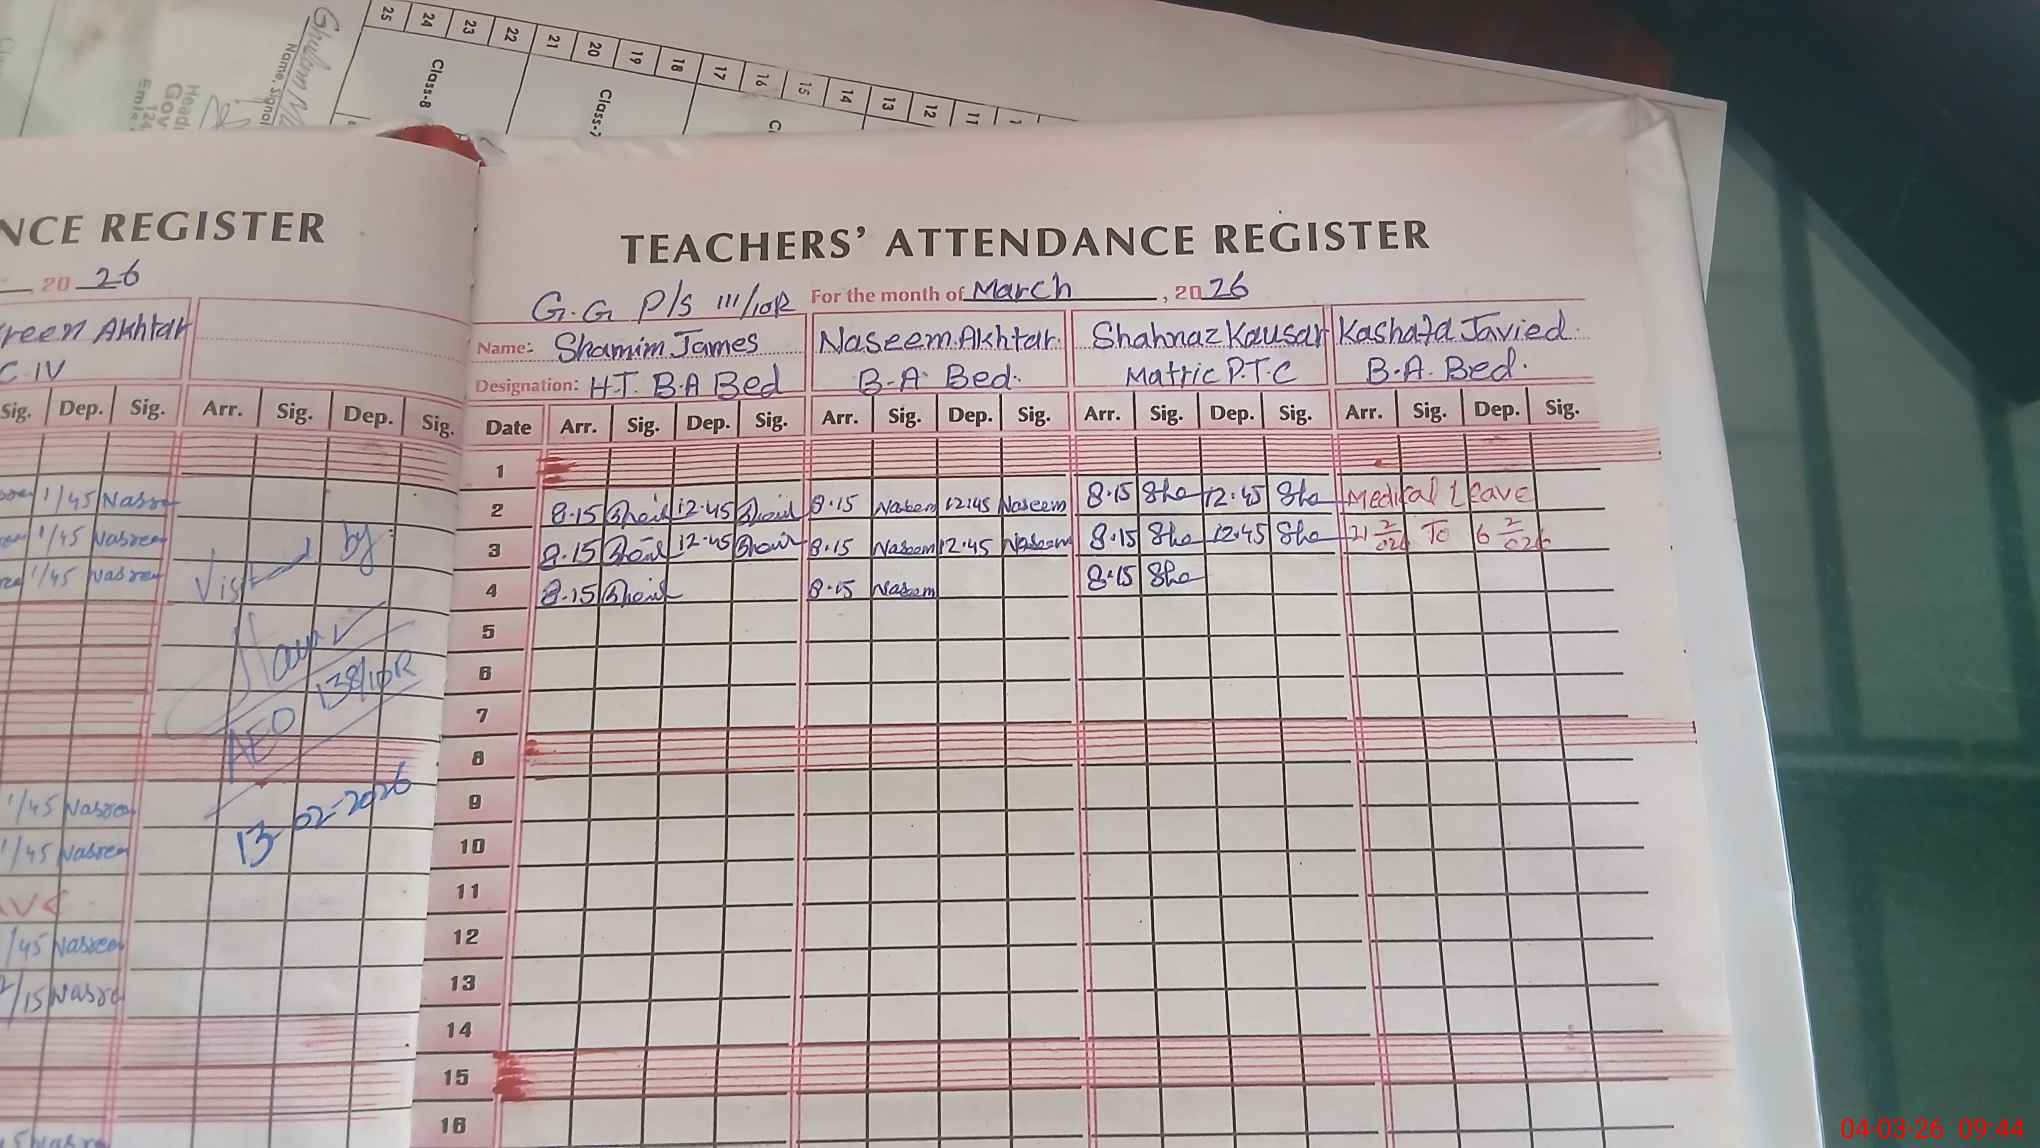 25 24 23 22 21 20 19 18 17 16 15 14 13 12 11
Class-8
Name, Signat
NCE REGISTER
, 20 26
reen Akhtar
C-IV
Sig. Dep. Sig. Arr. Sig. Dep. Sig.
1/45 Nasre
1/45 Nasreen
1/45 Nasreen
Visit by
AEO 138/10R
13-02-2026
1/45 Nasreen
1/45 Nasreen
/45 Nasreen
/15 Nasre
TEACHERS' ATTENDANCE REGISTER
G.G P/S 111/10R For the month of March, 2026
Name: Shamim James Naseem Akhtar Shahnaz Kausar Kashafa Javied
Designation: H.T. B.A Bed B-A Bed. Matric P.T.C B.A. Bed.
Date Arr. Sig. Dep. Sig. Arr. Sig. Dep. Sig. Arr. Sig. Dep. Sig. Arr. Sig. Dep. Sig.
1
2 8.15 12.45 8.15 Naseem 12.45 Naseem 8.15 Sha 12.45 Sha Medical Leave
3 8.15 12.45 8.15 Naseem 12.45 Naseem 8.15 Sha 12.45 Sha 21 2/026 To 6 2/026
4 8.15 8.15 Naseem 8.15 Sha
5
6
7
8
9
10
11
12
13
14
15
16
04-03-26 09:44